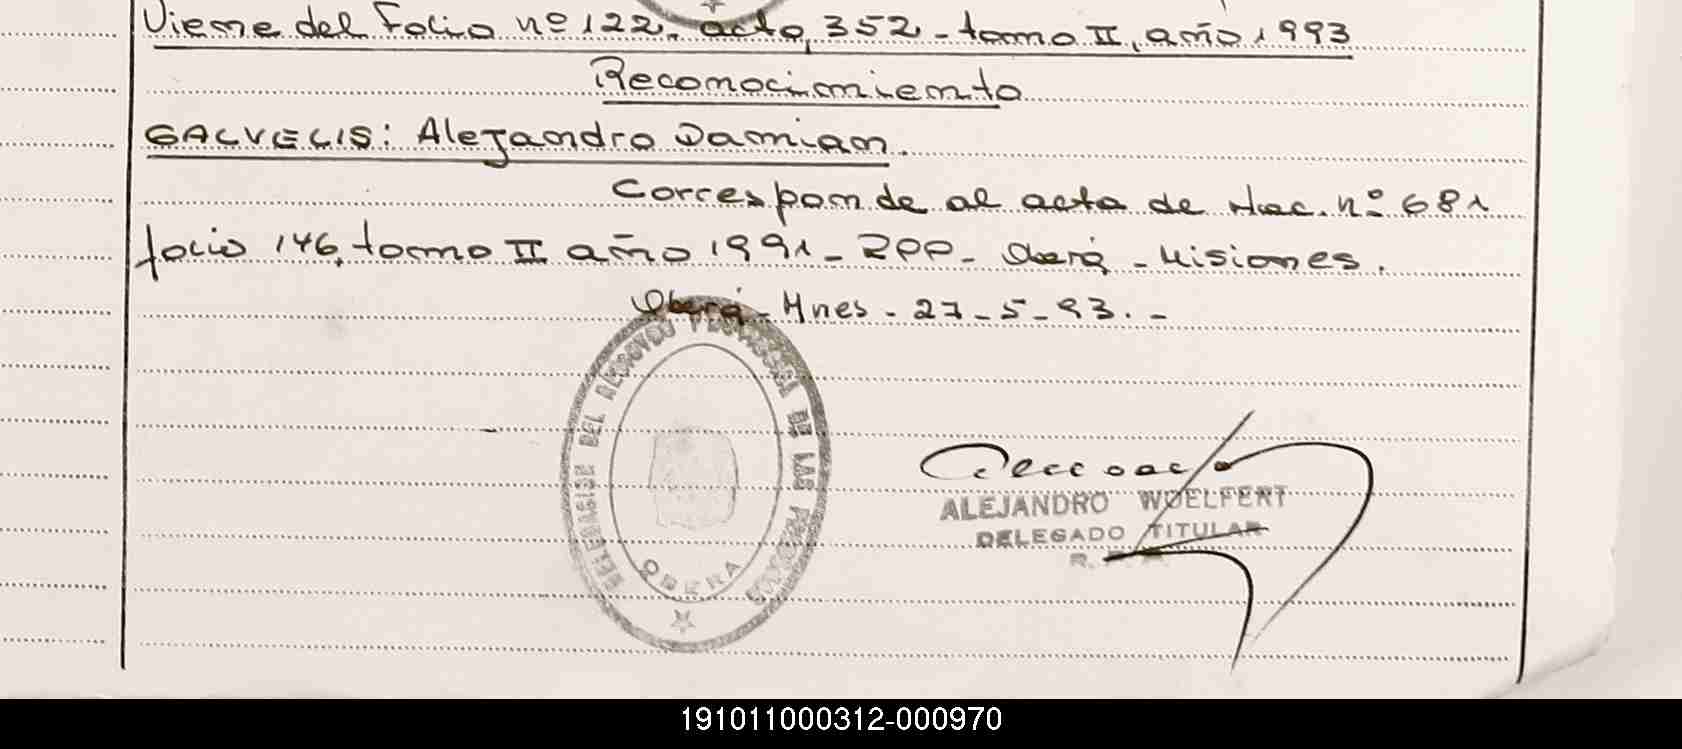 Viene del Folio nº 122. acta, 352 - tomo II, año 1993
Reconocimiento
GALVELIS: Alejandro Damian.
Corresponde al acta de Nac. nº 681
folio 146, tomo II año 1991 - RPP - Oberá - Misiones.
Oberá - Mnes - 27 - 5 - 93. -
DELEGACION DEL REGISTRO PROVINCIAL DE LAS PERSONAS
OBERA
ALEJANDRO WOELFERT
DELEGADO TITULAR
191011000312-000970